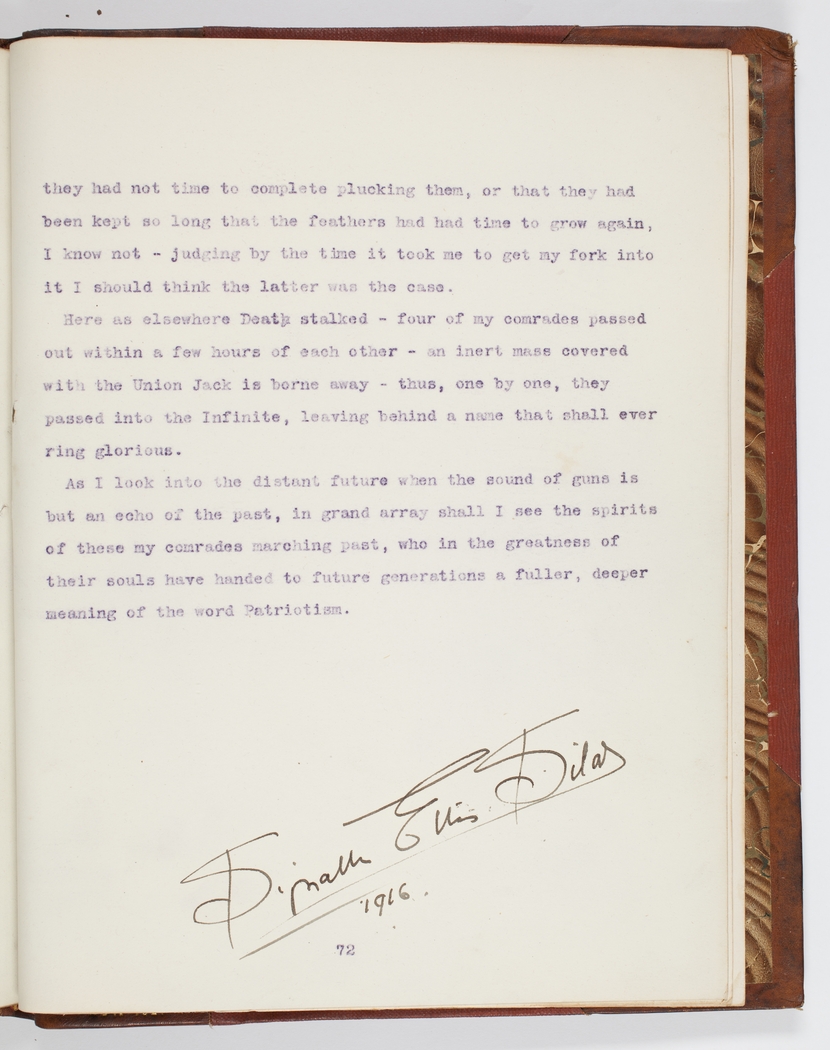 they had not time to complete plucking them, or that they had
been kept so long that the feathers had had time to grow again,
I know not - judging by the time it took me to get my fork into
it I should think the latter was the case.
Here as elsewhere Death stalked - four of my comrades passed
out within a few hours of each other - an inert mass covered
with the Union Jack is borne away - thus, one by one, they
passed into the Infinite, leaving behind a name that shall ever
ring glorious.
As I look into the distant future when the sound of guns is
but an echo of the past, in grand array shall I see the spirits
of these my comrades marching past, who in the greatness of
their souls have handed to future generations a fuller, deeper
meaning of the word Patriotism.
Ellis Silas
1916.
72